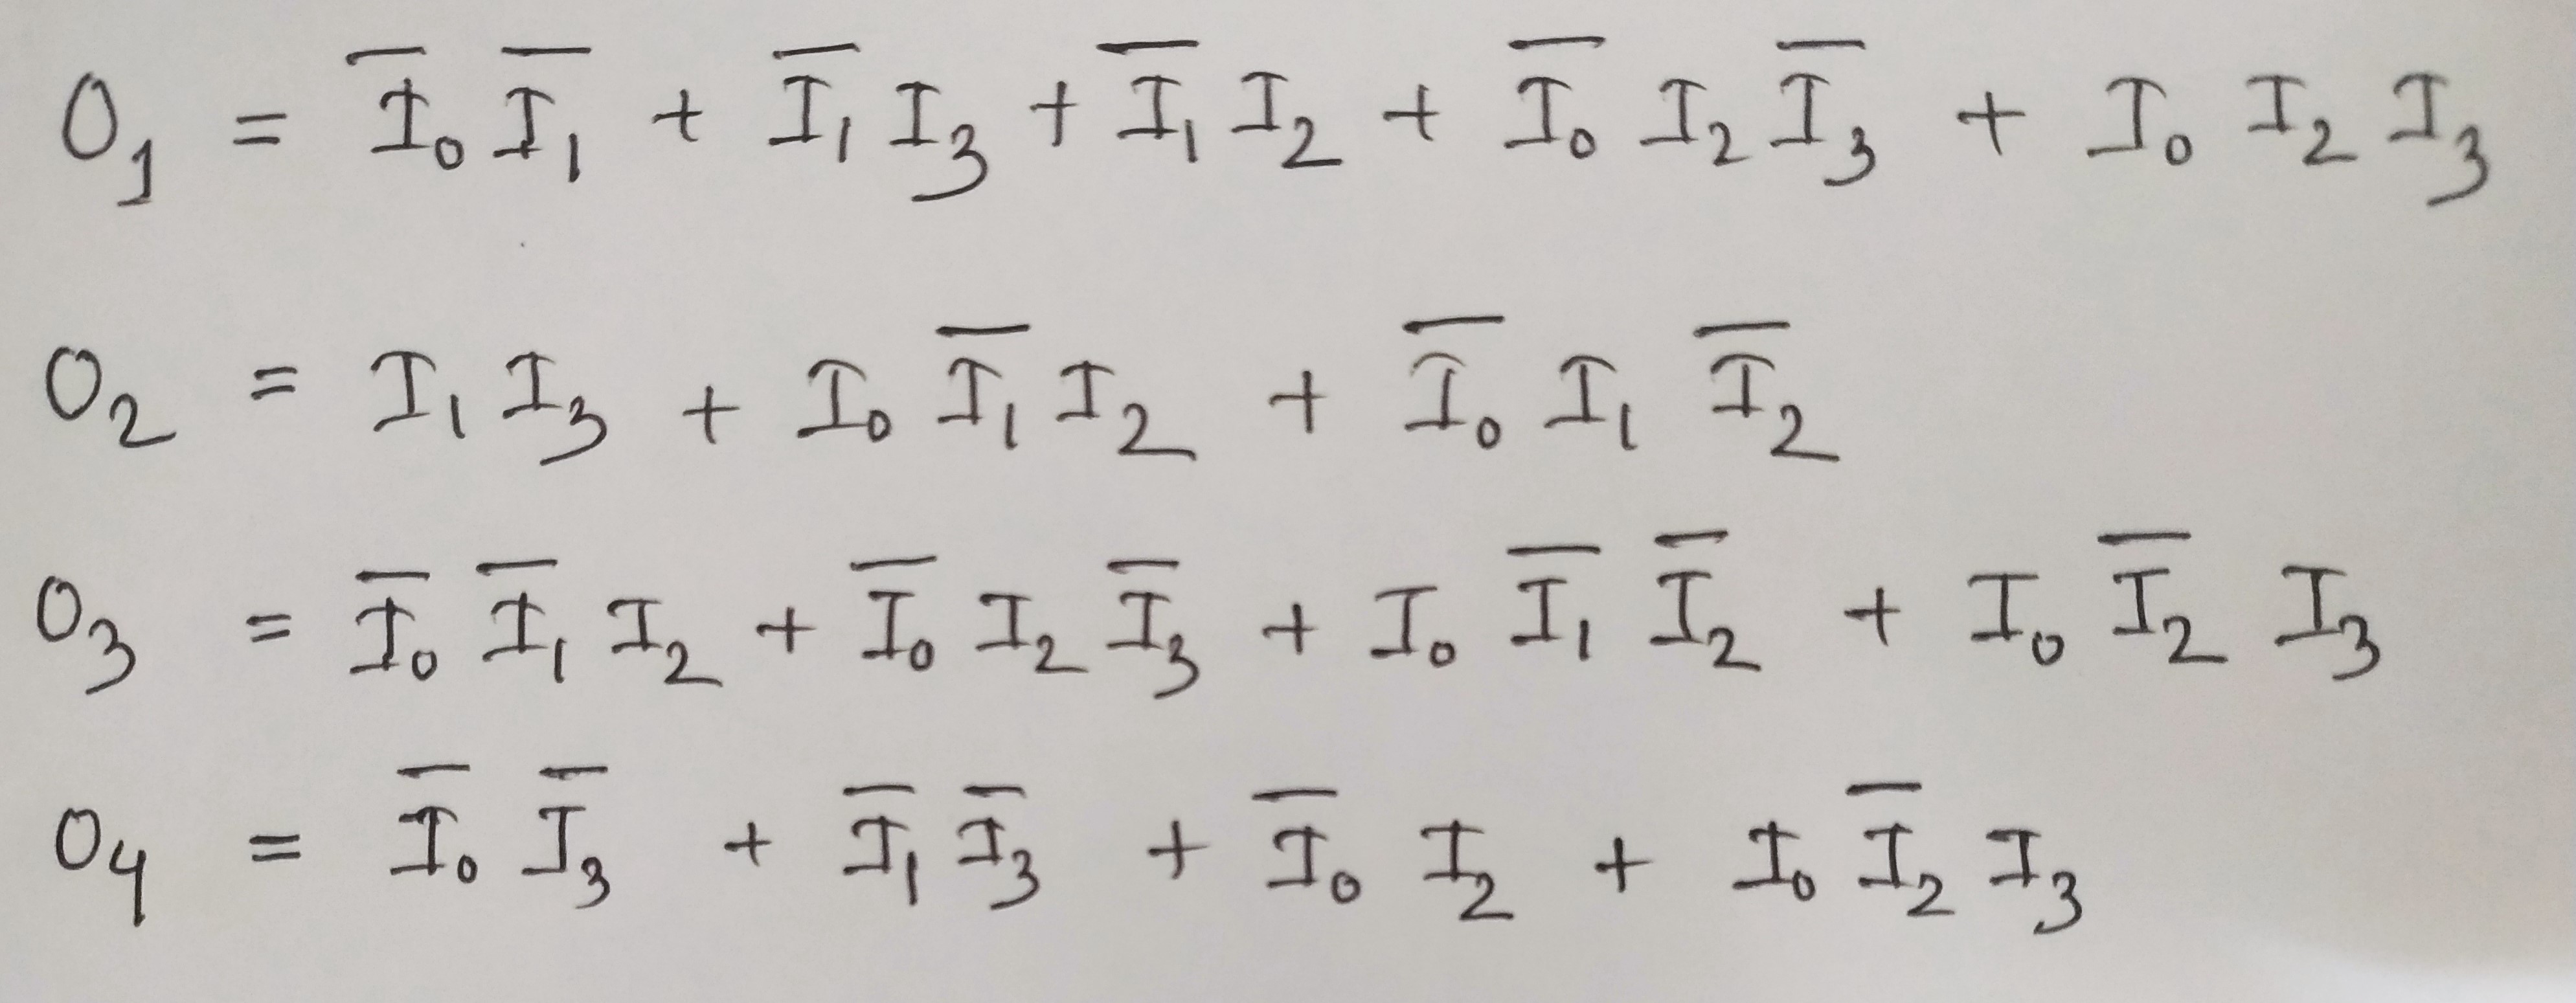 O₁ = I̅₀ I̅₁ + I̅₁ I₃ + I̅₁ I₂ + I̅₀ I₂ I̅₃ + I₀ I₂ I₃
O₂ = I₁ I₃ + I₀ I̅₁ I₂ + I̅₀ I₁ I̅₂
O₃ = I̅₀ I̅₁ I₂ + I̅₀ I₂ I̅₃ + I₀ I̅₁ I̅₂ + I₀ I̅₂ I₃
O₄ = I̅₀ I̅₃ + I̅₁ I̅₃ + I̅₀ I₂ + I₀ I̅₂ I₃